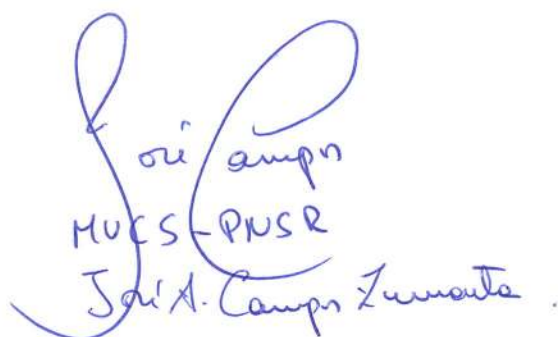 José Campos
MVCS-PNSR
José A. Campos Zumaeta.